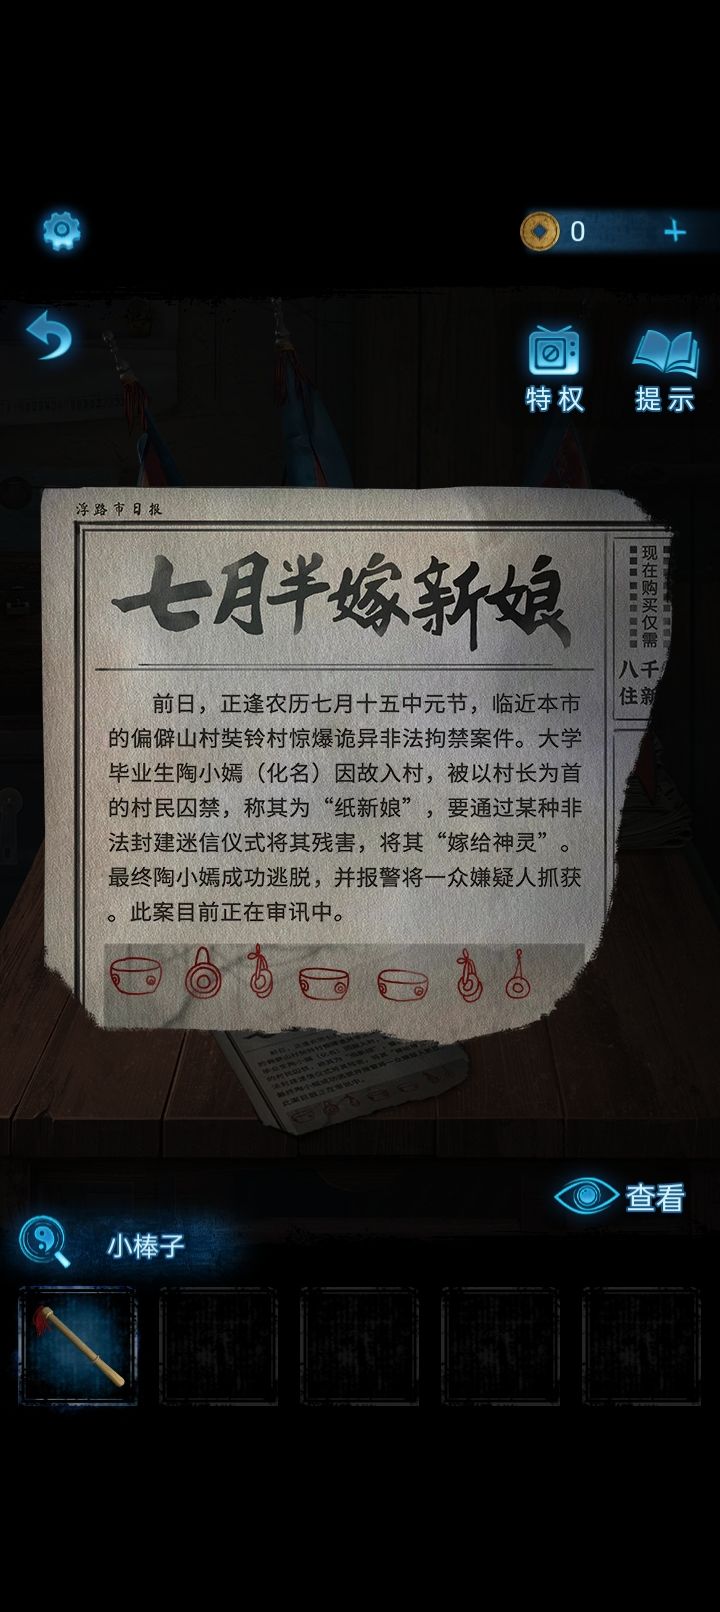 0
特权
提示
浮路市日报
七月半嫁新娘
现在购买仅需
八千
住新
前日，正逢农历七月十五中元节，临近本市
的偏僻山村奘铃村惊爆诡异非法拘禁案件。大学
毕业生陶小嫣（化名）因故入村，被以村长为首
的村民囚禁，称其为“纸新娘”，要通过某种非
法封建迷信仪式将其残害，将其“嫁给神灵”。
最终陶小嫣成功逃脱，并报警将一众嫌疑人抓获
。此案目前正在审讯中。
查看
小棒子